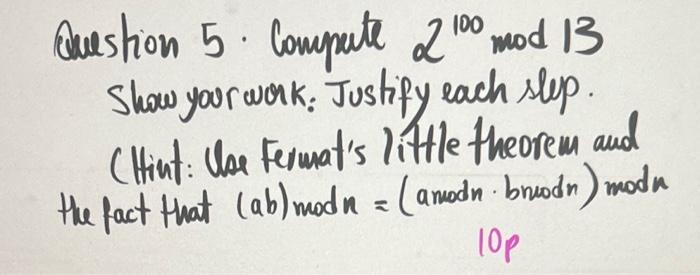 Question 5. Compute 2^100 mod 13
Show your work. Justify each step.
(Hint: Use Fermat's little theorem and
the fact that (ab) mod n = (a mod n · b mod n) mod n
10p